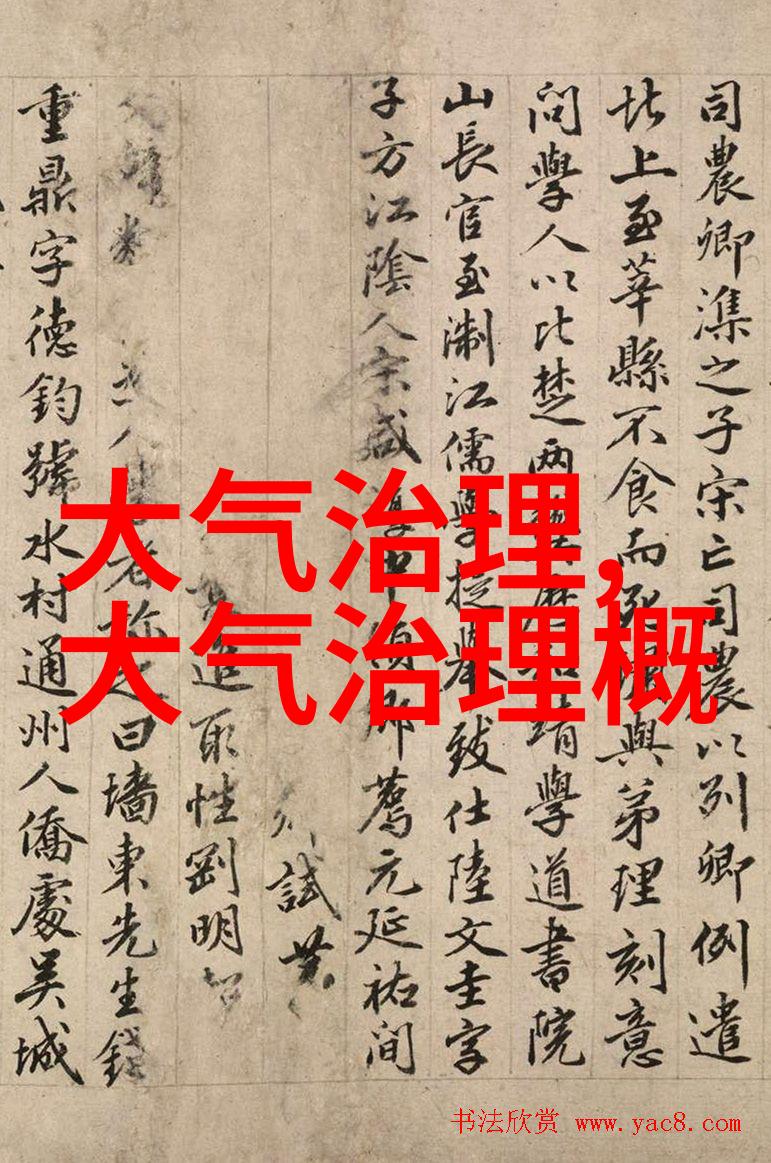 司農卿潗之子宋亡司農以列卿例遣
北上至莘縣不食而與弟理刻意
問學人以比楚两學道書院
山長官至淛江儒學提舉致仕陸文圭字
子方江陰人宋咸淳薦元延祐间
試
追取性剛明
人老称之曰墻東先生錢
重鼎字德鈞號水村通州人僑處吴城
大气治理,
大气治理概
书法欣赏 www.yac8.com